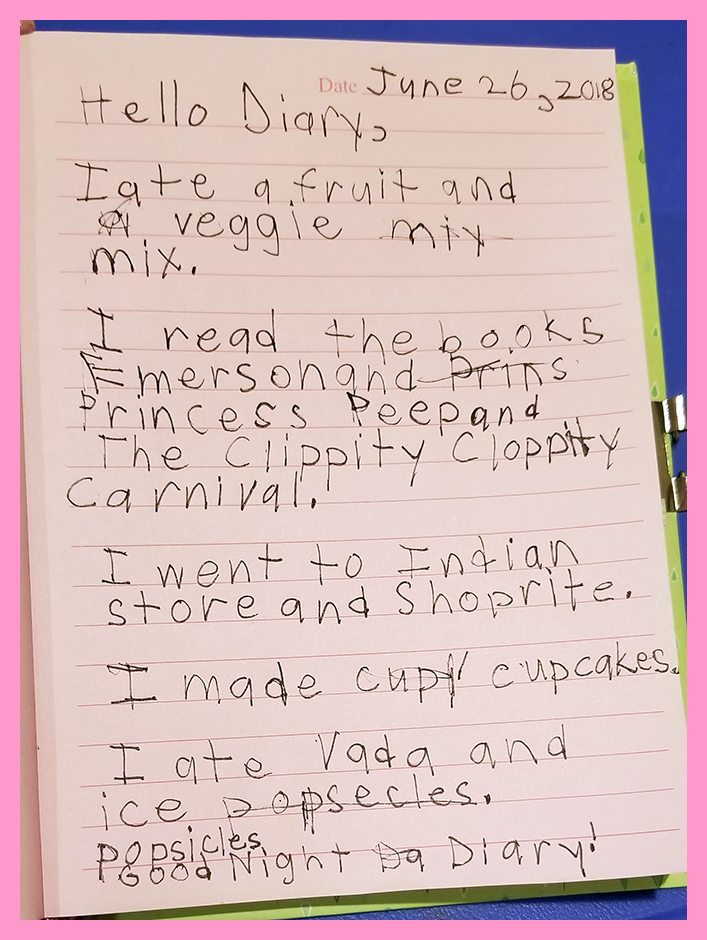 Date June 26, 2018
Hello Diary,
I ate a fruit and
a veggie mix
mix.
I read the books
Emerson and Prins
Princess Peep and
The Clippity Cloppity
Carnival.
I went to Indian
store and Shoprite.
I made cup cupcakes.
I ate Vada and
ice popsecles.
popsicles
Good Night Da Diary!